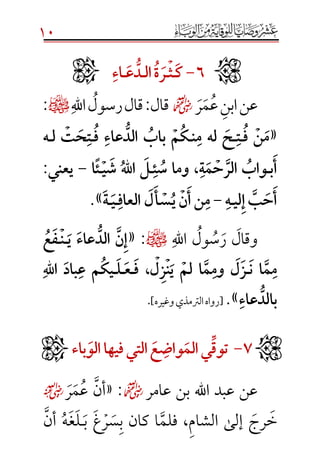 عَشْرُ وَصَايَا لِلْوِقَايَةِ مِنَ الْوَبَاءِ ١٠
٦ - كَثْرَةُ الدُّعَاءِ
عن ابنِ عُمَرَ ﷺ قال: قال رسولُ اللهِ ﷺ:
«مَنْ فُتِحَ له مِنكُمْ بابُ الدُّعاءِ فُتِحَتْ له
أبوابُ الرَّحْمَةِ، وما سُئِلَ اللهُ شَيْئًا - يعني:
أَحَبَّ إليهِ - مِن أَنْ يُسْأَلَ العافِيَةَ».
وقالَ رَسُولُ اللهِ ﷺ: «إِنَّ الدُّعاءَ يَنْفَعُ
مِمَّا نَزَلَ ومِمَّا لمْ يَنْزِلْ، فَعَلَيكُم عِبادَ اللهِ
بالدُّعاءِ». [رواه الترمذي وغيره].
٧ - توقِّي المَواضِعَ التي فيها الوَباء
عن عبد الله بن عامر: «أنَّ عُمَرَ
خَرجَ إلى الشامِ، فلمَّا كان بِسَرْغَ بَلَغَهُ أنَّ